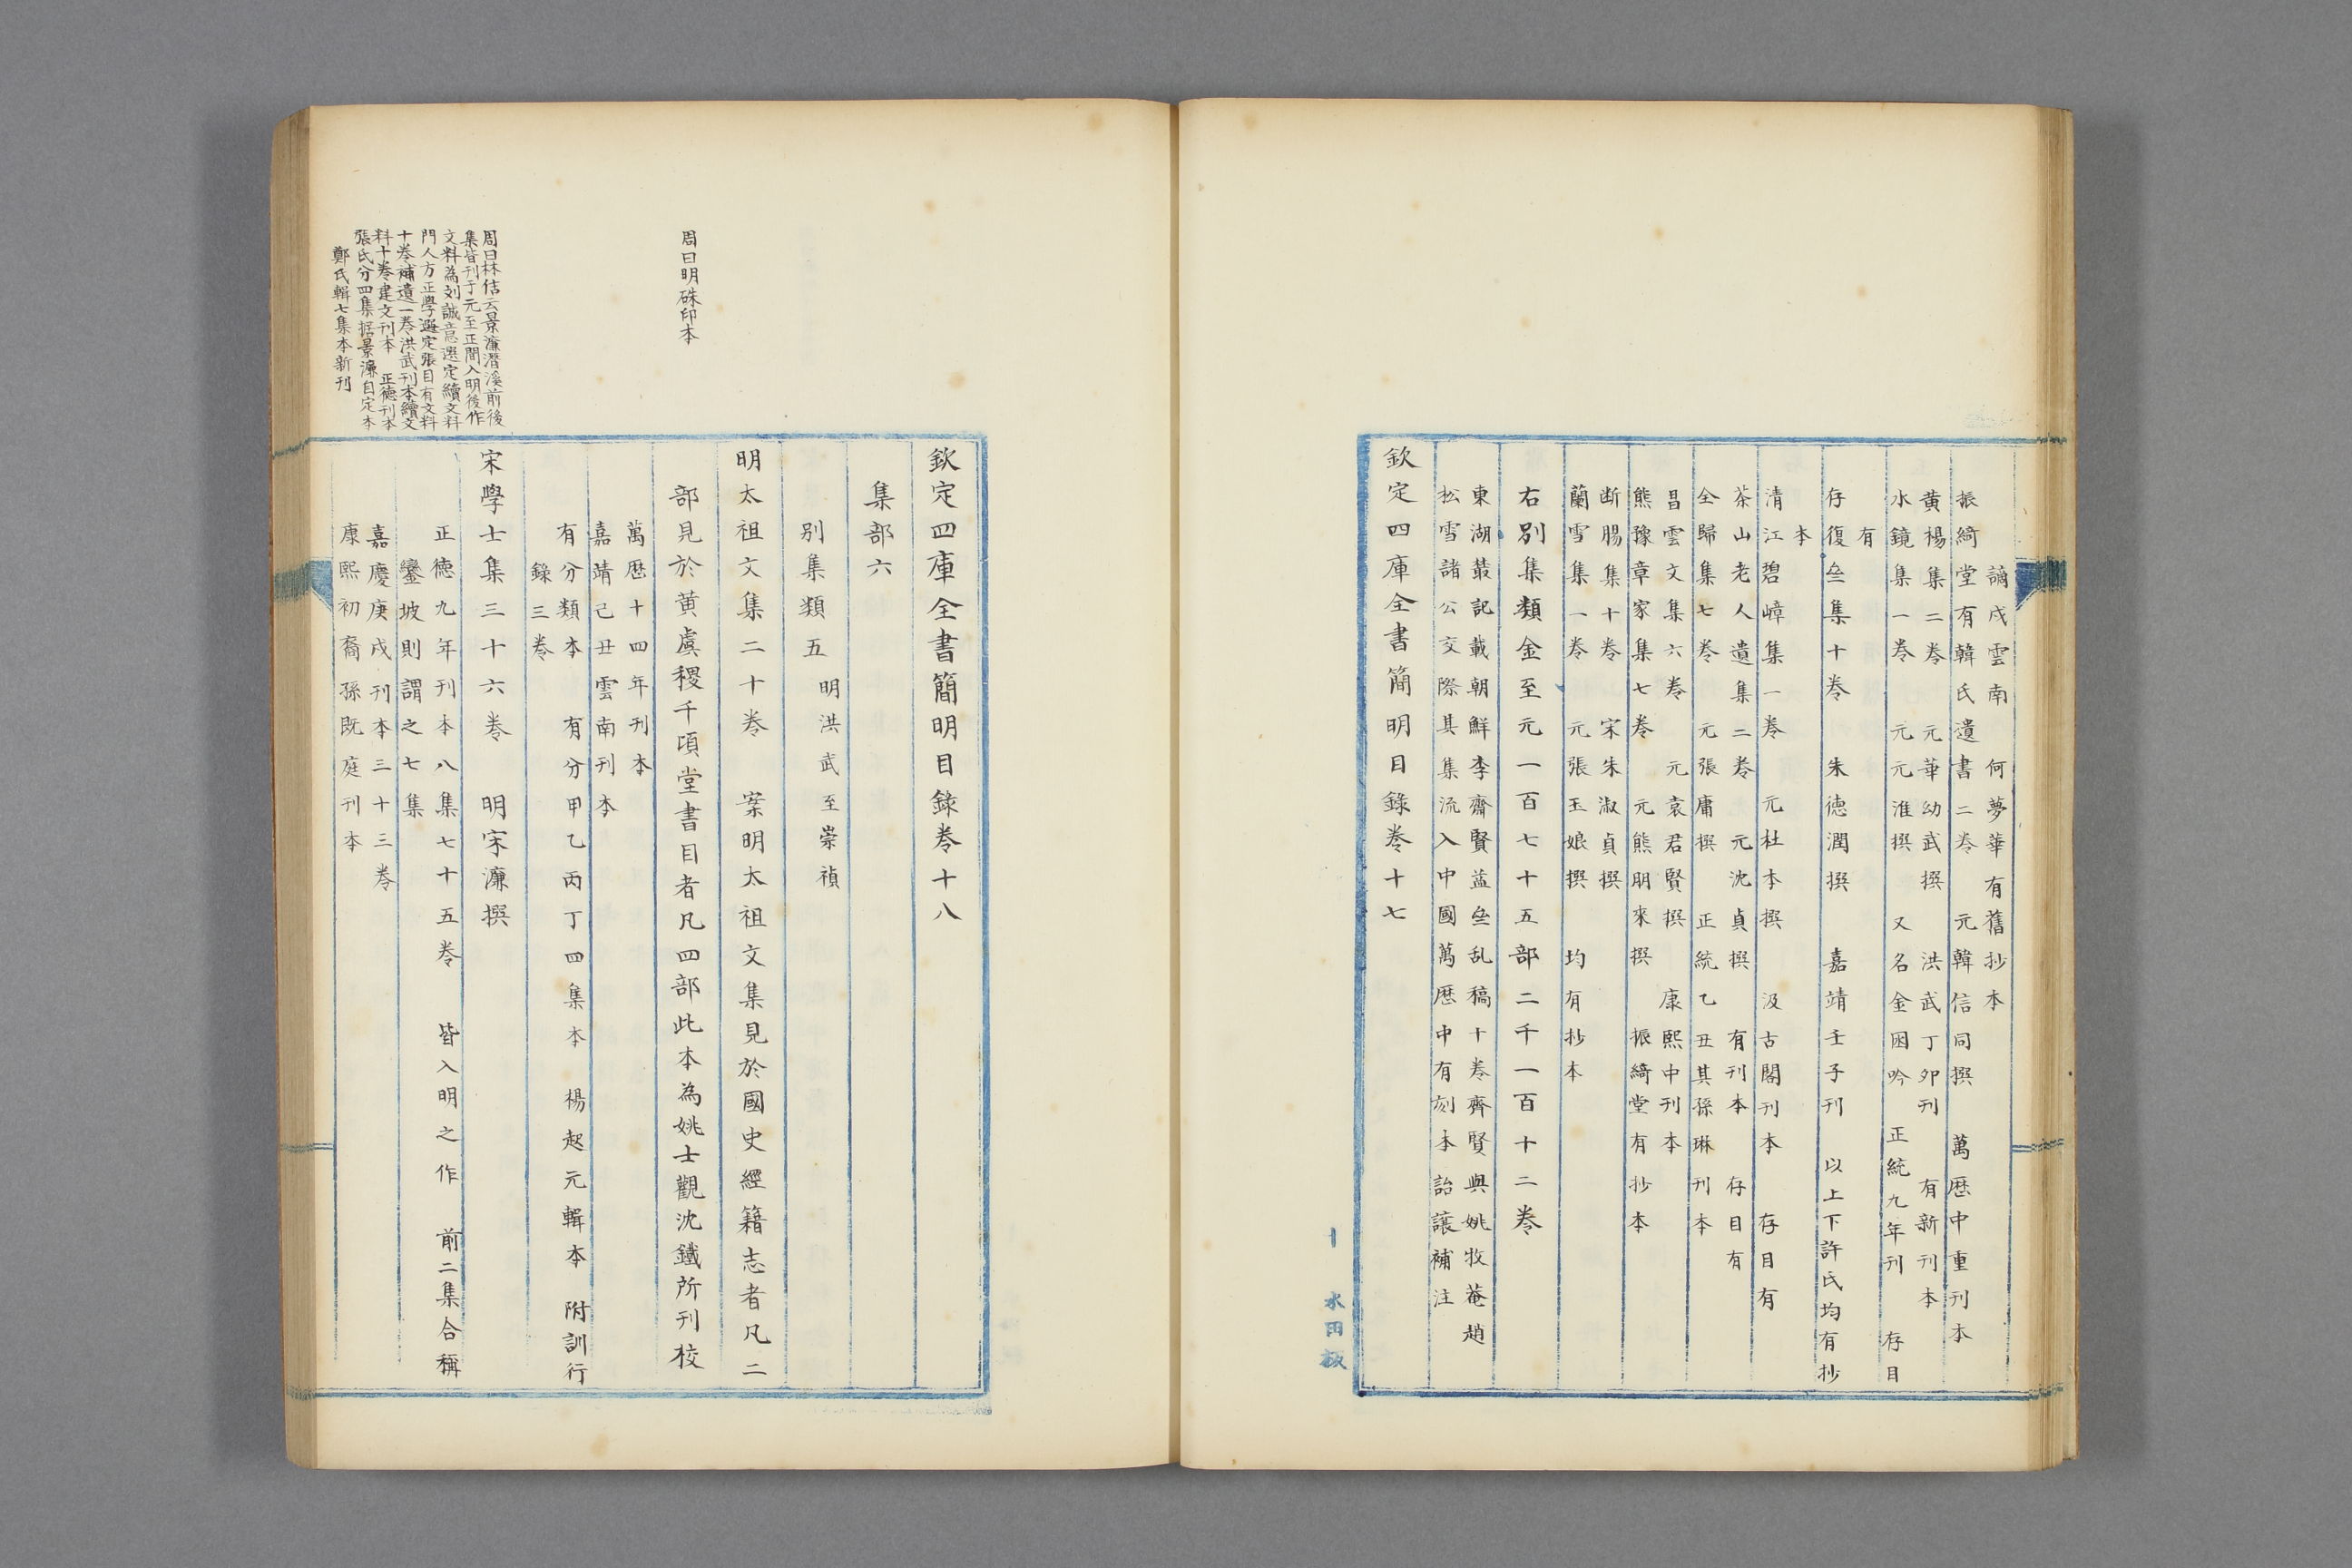 謫戍雲南　何夢華有舊抄本
振綺堂有韓氏遺書二卷　元韓信同撰　萬厯中重刊本
黃楊集二卷　元華幼武撰　洪武丁卯刊　有新刊本
水鏡集一卷　元元淮撰　又名金囦吟　正統九年刊　存目
有
存復㕘集十卷　朱德潤撰　嘉靖壬子刊　以上下許氏均有抄
本
清江碧嶂集一卷　元杜本撰　汲古閣刊本　存目有
茶山老人遺集二卷　元沈貞撰　有刊本　存目有
全歸集七卷　元張庸撰　正統乙丑其孫琳刊本
昌雲文集六卷　元袁君賢撰　康熙中刊本
熊豫章家集七卷　元熊朋來撰　振綺堂有抄本
断腸集十卷　宋朱淑貞撰
蘭雪集一卷　元張玉娘撰　均有抄本
右別集類金至元一百七十五部二千一百十二卷
東湖叢記載朝鮮李齋賢益㕘乱稿十卷齊賢與姚牧菴趙
松雪諸公交際其集流入中國萬厯中有刻本詒讓補注
欽定四庫全書簡明目錄卷十七
十
水田板
欽定四庫全書簡明目錄卷十八
集部六
別集類五　明洪武至崇禎
明太祖文集二十卷　案明太祖文集見於國史經籍志者凡二
部見於黃虞稷千頃堂書目者凡四部此本為姚士觀沈鐵所刊校
周曰明硃印本
萬厯十四年刊本
嘉靖己丑雲南刊本
有分類本　有分甲乙丙丁四集本　楊起元輯本　附訓行
錄三卷
宋學士集三十六卷　明宋濂撰
周曰林佶云景濂潛溪前後
集皆刊于元至正間入明後作
文料為刘誠意選定續文料
門人方正學選定張目有文料
十卷補遺一卷洪武刊本續文
料十卷建文刊本　正德刊本
張氏分四集据景濂自定本
鄭氏輯七集本新刊
正德九年刊本八集七十五卷　皆入明之作　前二集合稱
鑾坡則謂之七集
嘉慶庚戌刊本三十三卷
康熙初裔孫既庭刊本